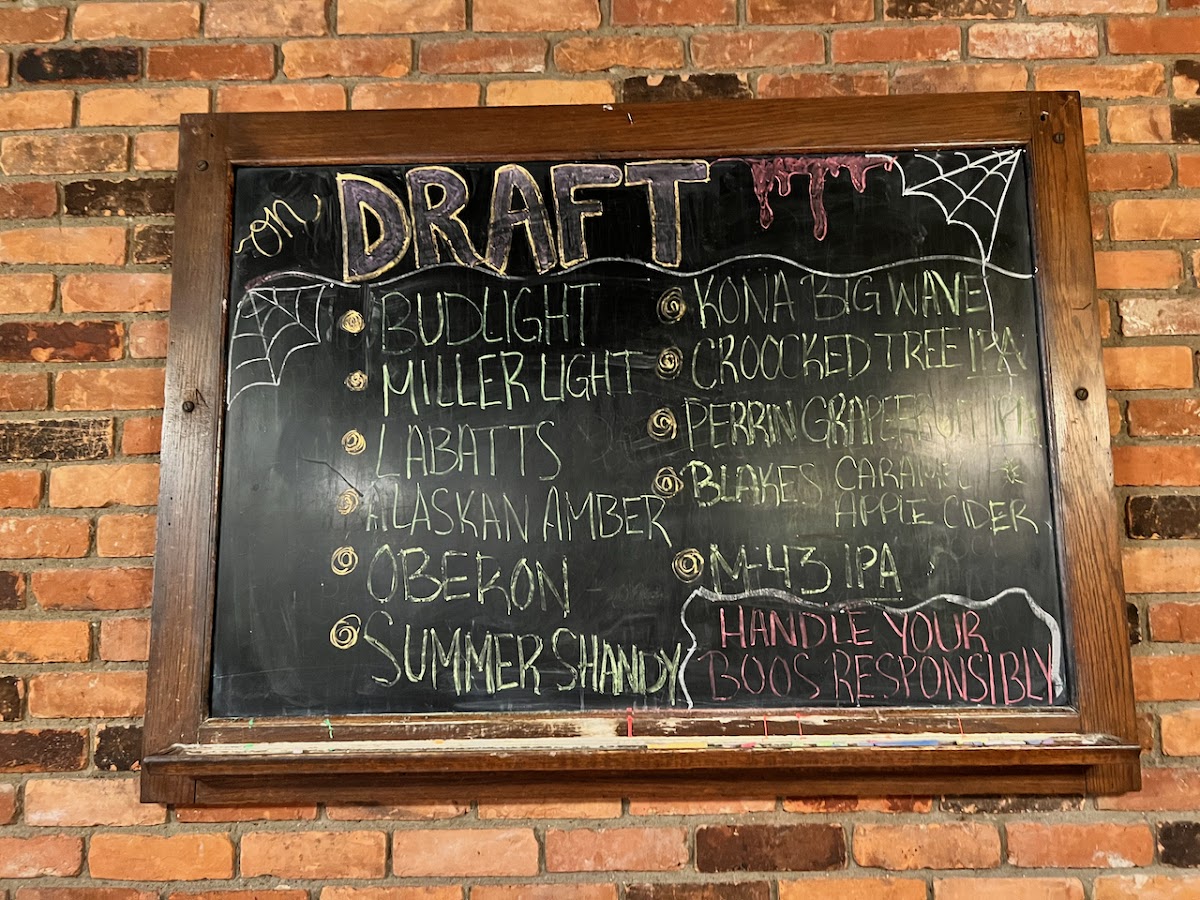 on DRAFT
BUDLIGHT
MILLER LIGHT
LABATTS
ALASKAN AMBER
OBERON
SUMMER SHANDY
KONA BIG WAVE
CROOCKED TREE IPA
PERRIN GRAPEFRUIT IPA
BLAKES CARAMEL
APPLE CIDER
M-43 IPA
HANDLE YOUR
BOOS RESPONSIBLY